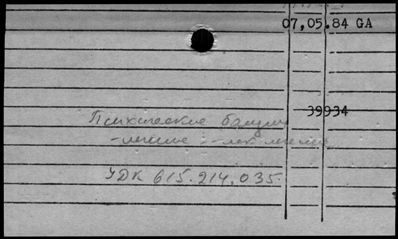 07,05.84 GA
39934
Психические болезни
-лечение
УДК 615.214.035.